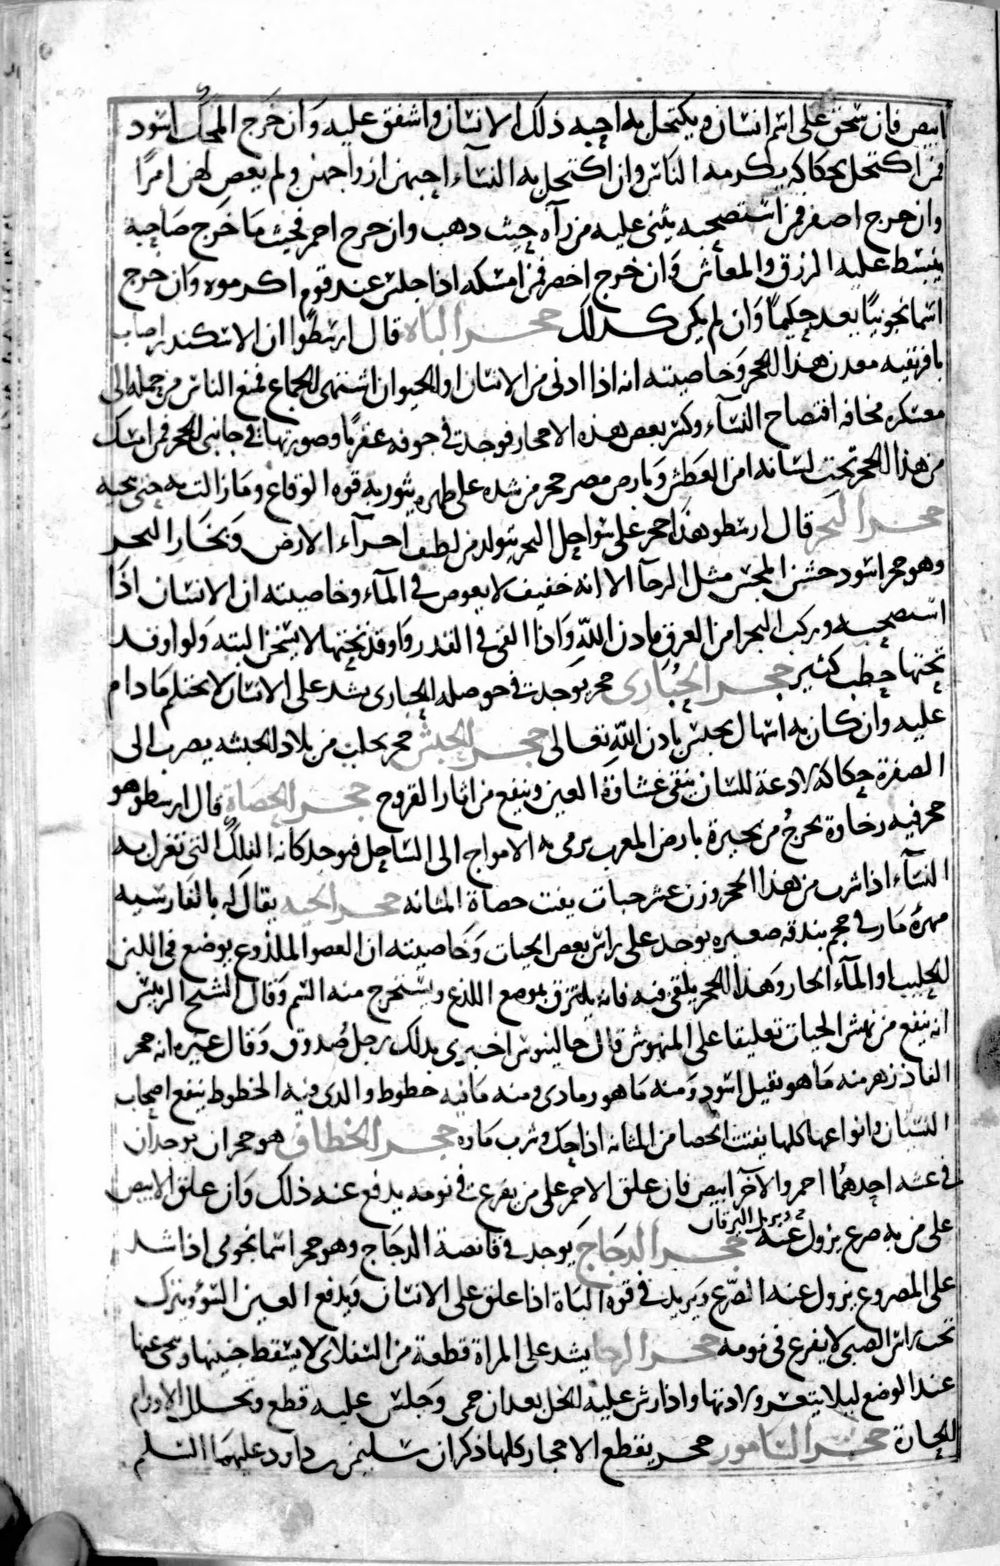 ابيض فان سحق على اسم انسان ويكتحل به احبه ذلك الانسان واشفق عليه وان خرج المحك اسود
فمن اكتحل بحكاكه يكرمه الناس وان اكتحل به النسآء احبهن ازواجهن ولم يعص لهن امرًا
وان خرج اصفر فمن استصحبه يثنى عليه من رآه حيث دهب وان خرج احمر فحيث ما خرج صاحبه
ينبسط عليه الرزق والمعاش وان خرج اخضر فمن امسكه اذا جلس عند قوم اكرموه وان خرج
اسمانجونيًا يعد حكيمًا وان لم يكن كدلك حجر الباه قال ارسطو ان الاسكندر اصاب
بافريقيه معدن هذا الحجر وخاصيته انه اذا ادنى من الانسان او الحيوان اشتهى الجماع فمنع الناس من حمله الى
معسكره مخافه افتضاح النسآء وكسر بعص هذه الاحجار فوجدت فى جوفه عقربًا وصورتها فى جانبى الحجر فمن امسك
من هذا الحجر تحت لسانه امن العطش وبارض مصر حجر من شده على ظهره يثور به قوه الوقاع وما زالت به حتى ينحيه
حجر البحر قال ارسطو هذا حجر على سواحل البحر يتولد من لطيف اجزآء الارض وبخار البحر
وهو حجر اسود خشن المجس مثل الرحآ الا انه خفيف لا يغوص فى المآء وخاصيته ان الانسان اذا
استصحبه وركب البحر امن الغرق باذن الله واذا القى فى القدر واوقد تحتها لا يسخن البته ولو اوقد
تحتها حطب كثير حجر الحبارى حجر يوجدت فى حوصله الحبارى يشد على الانسان لا يحتلم ما دام
عليه وان كان به اسهال يحبس باذن الله تعالى حجر الحبش حجر يجلب من بلاد الحبشه يضرب الى
الصفرة حكاكة لادعة للسان ينقى غشاوة العين وينفع من اثار القروح حجر الحصاة قال ارسطو هو
حجر فيه رخاوة يخرج من بحيرة بارض المغرب يرمى به الامواج الى الساحل فيوجد كانه الفلك التى تغزل به
النسآء اذا شرب من هذا الحجر وزن عشر حبات يفتت حصاة المثانه حجر الحيه يقال له بالفارسيه
مهرة مار فى حجم بندقه صغيره يوجد على راس بعض الحيات وخاصيته ان العضو الملدوغ يوضع فى اللبن
الحليب او المآء الحار وهذا الحجر يلقى فيه فانه يلتزق بموضع اللدغ ويستخرج منه السم وقال الشيخ الرييس
انه ينفع من نهش الحيات تعليقا على المنهوش قال جالينوس اخبرى بدلك رجل صدوق وقال غيره انه حجر
الفاذزهر منه ما هو ثقيل اسود ومنه ما هو رمادى ومنه ما فيه خطوط والدى فيه الخطوط ينفع اصحاب
النسيان وانواعها كلها يفتت الحصا من المثانه اذا حك وشرب ماوه حجر الخطاف هو حجران يوجدان
فى عشه احدهما احمر والآخر ابيض فان علق الاحمر على من يفزع فى نومه يدفع عنه ذلك وان علق الابيض
على من به صرع يزول عنه ويزيل اليرقان حجر الدجاج يوجد فى قانصة الدجاج وهو حجر اسمانجونى اذا شد
على المصروع يزول عنه الصرع ويزيد فى قوه الباة اذا علق على الانسان ويدفع العين السوء ويترك
تحت راس الصبى لا يفزع فى نومه حجر الرحا يشد على المراة قطعة من السفلانى لا يسقط جنينها وينحى عنها
عند الوضع ليلا يتعسر ولادتها واذا رش عليه الخل بعد ان حمى وجلس عليه قطع وتحلل الاورام
الحارة حجر السامور حجر يقطع الاحجار كلها ذكر ان سليمن بن داود عليهما السلم